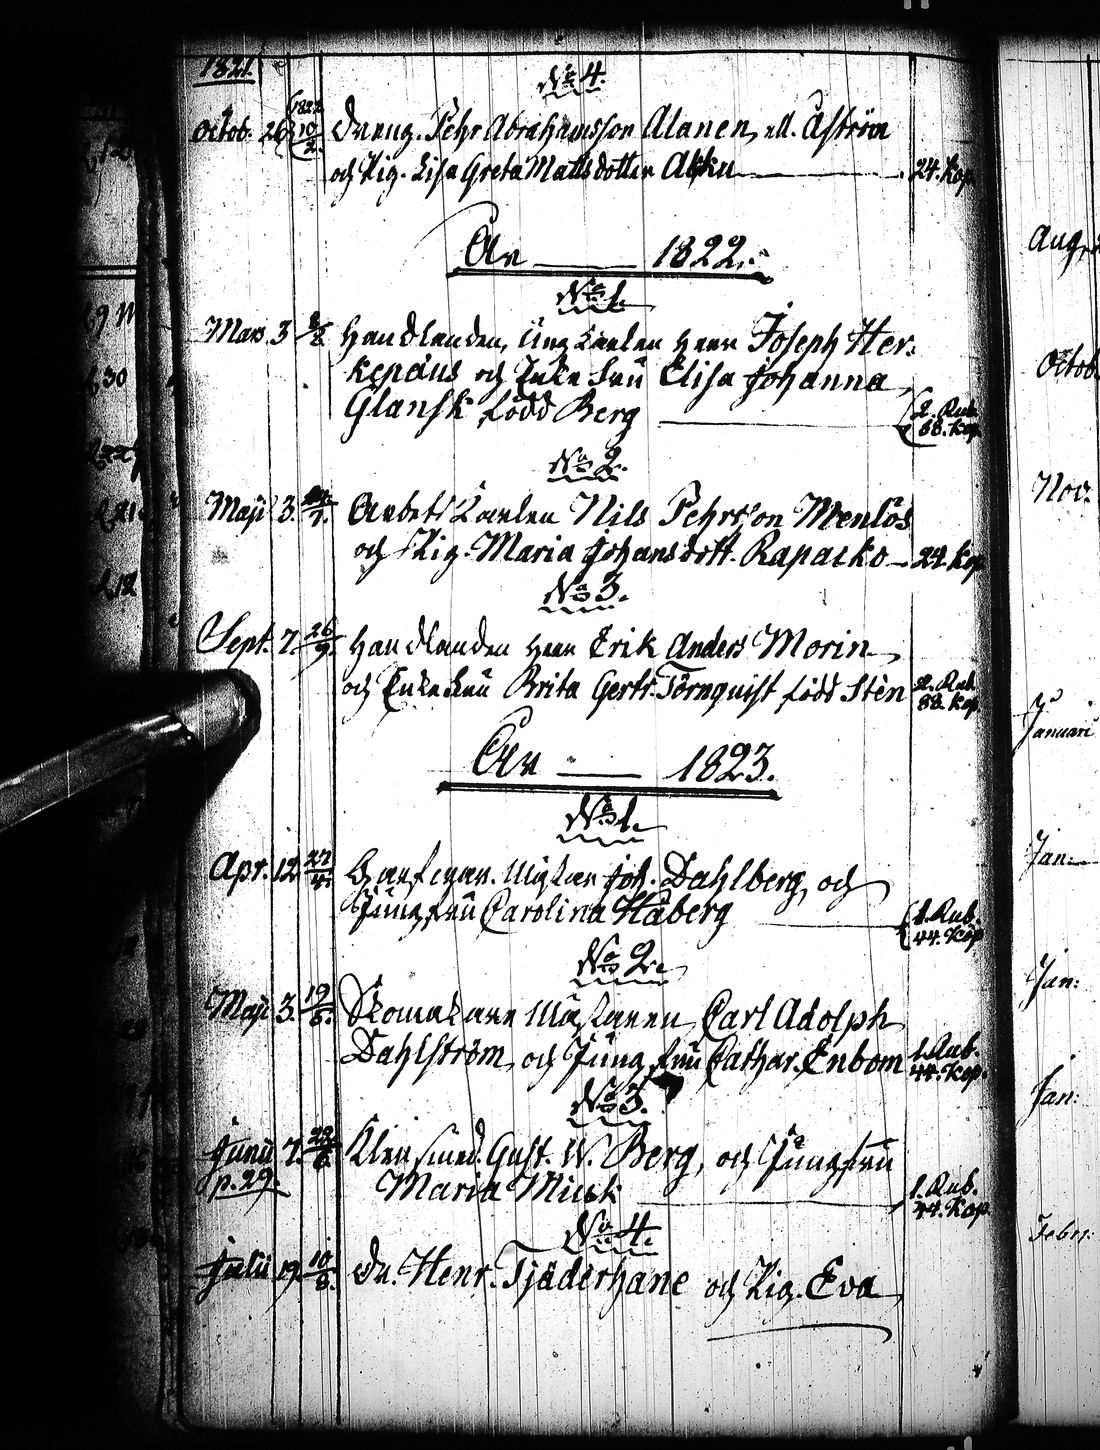 1821.
No 4.
Octob. 26 1822 10/2. Dreng. Pehr Abrahamsson Alanen, ell. Åström
och Pig. Lisa Greta Matts dotter 24. Kop.
År 1822.
No 1.
Mars 3 Handlanden, Ung Karlen Herr Joseph Her-
kepæus och Enke Fru Elisa Johanna
Glansk född Berg 2. Rub. 88. Kop.
No 2.
Maji 3. Arbets Karlen Nils Pehrsson Menlös
och Pig. Maria Johansdott. Rapacko 24. Kop
No 3.
Sept. 7. 26/9. Handlanden Herr Erik Anders Morin
och Enke Fru Brita Gertr. Törnquist född Stén 2. Rub. 88. Kop
År 1823.
No 1.
Apr. 12 27/4. Garfvar. Mästar Joh. Dahlberg, och
Jungfru Carolina Håberg 1. Rub. 44. Kop
No 2.
Maji 3. 19/6. Skomakare Mästaren, Carl Adolph
Dahlström, och Jungfru Cathar. Enbom 1. Rub. 44. Kop.
No 3.
Junii 7. 29/6. Klensmed. Gust. W. Berg, och Jungfru
p. 29. Maria 1. Rub. 44. Kop.
No 4.
Julii 19. 10/8. Dr. Henr. Tjäderhane och Pig. Eva
Aug.
Octob.
Nov.
Januari
Jan:
Jan:
Jan:
Febr: